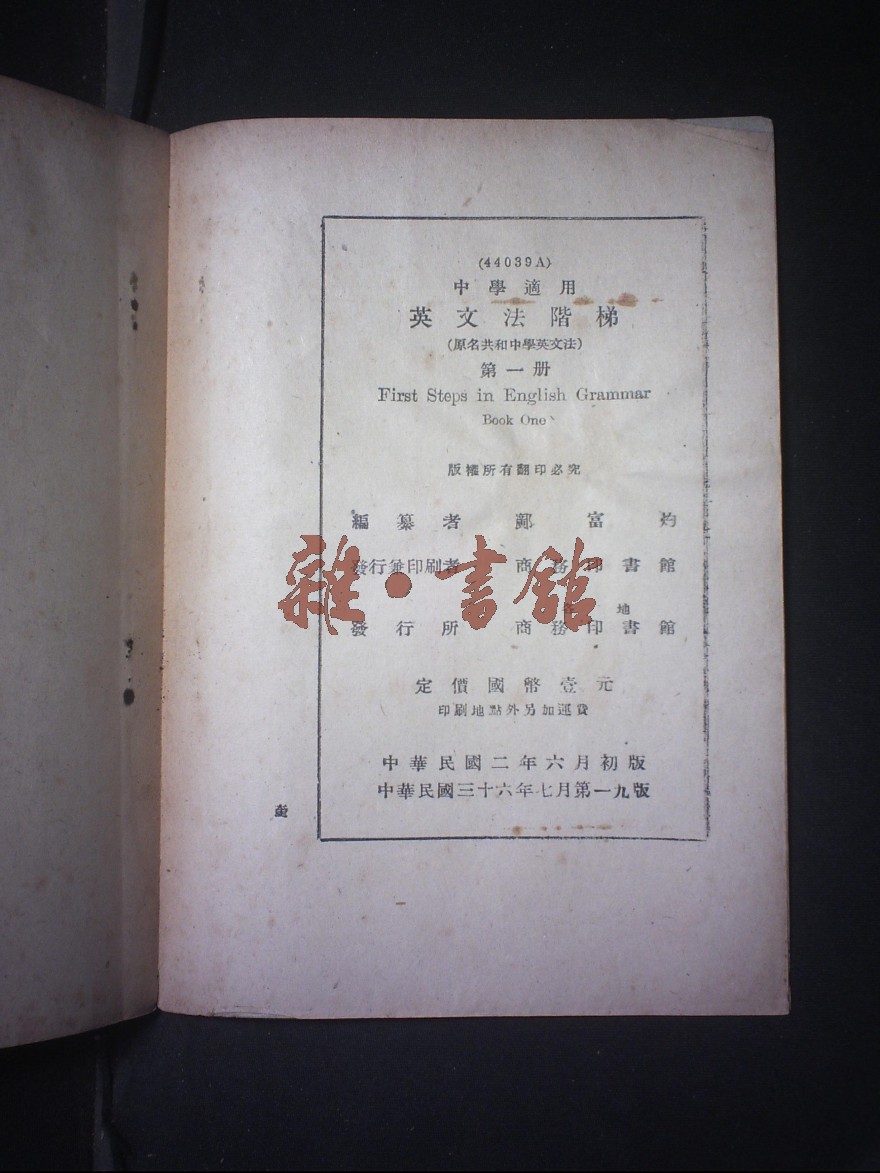 (44039A)
中學適用
英文法階梯
(原名共和中學英文法)
第一册
First Steps in English Grammar
Book One
版權所有翻印必究
編纂者 鄺富灼
發行兼印刷者 商務印書館
各地
發行所 商務印書館
雜·書館
定價國幣壹元
印刷地點外另加運費
中華民國二年六月初版
中華民國三十六年七月第一九版